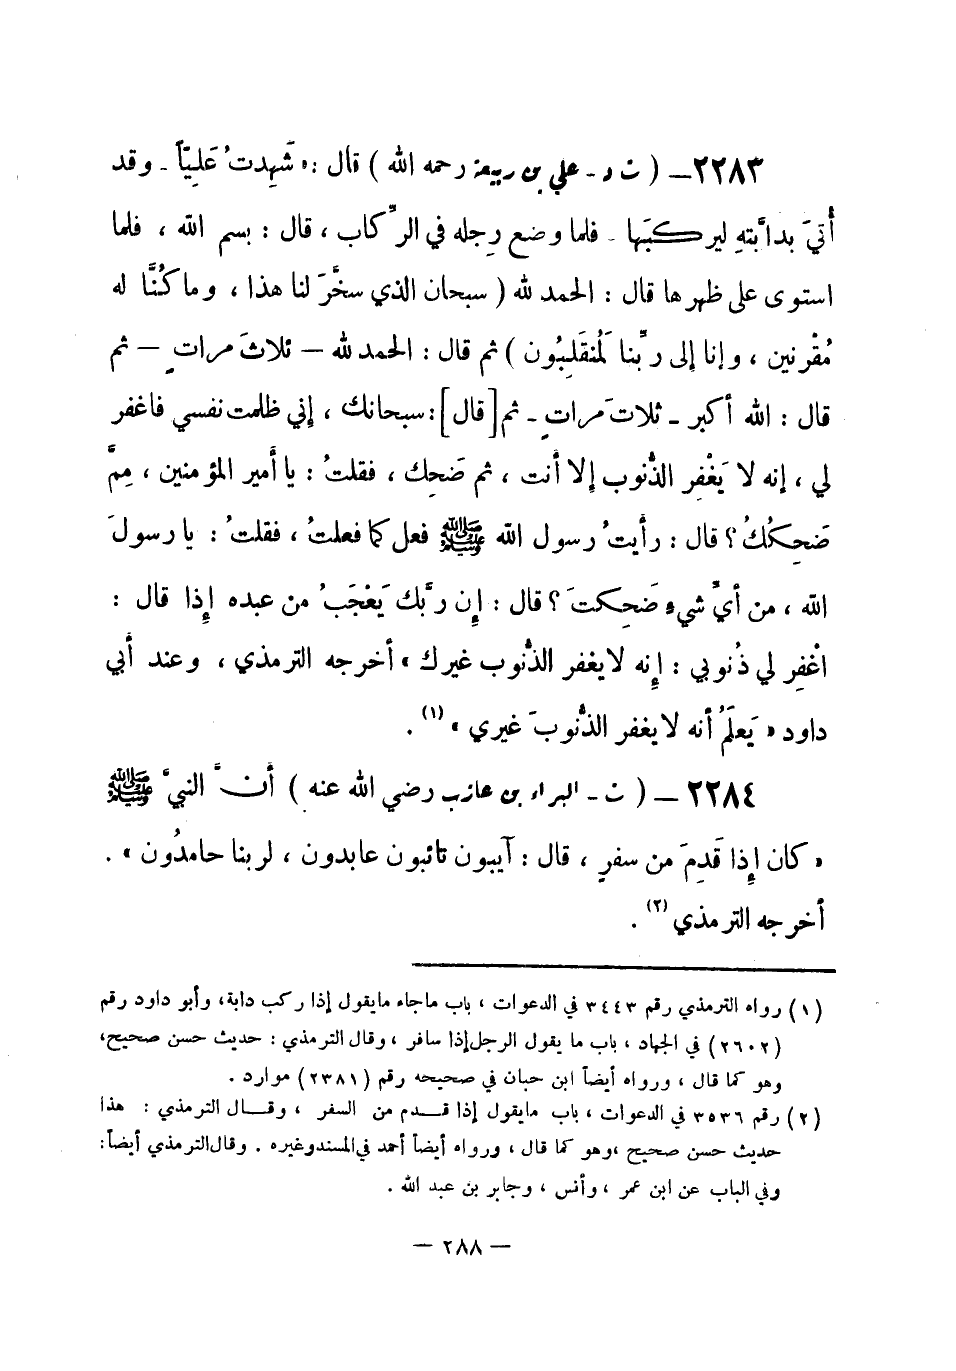 ٢٢٨٣ — ( ت د - علي بن ربيعة رحمه الله ) قال : « شَهِدتُ عَلِيّاً - وقد
أُتيَ بدابَّتهِ ليركبَها - فلما وضع رِجله في الرِّكاب ، قال : بسم الله ، فلما
استوى على ظهرها قال : الحمد لله ( سبحان الذي سخَّرَ لنا هذا ، وما كُنَّا له
مُقْرنين ، وإنا إلى ربِّنا لَمُنقَلِبُون ) ثم قال : الحمد لله — ثلاثَ مراتٍ — ثم
قال : الله أكبر - ثلاثَ مراتٍ - ثم [ قال ] : سبحانك ، إني ظلمت نفسي فاغفر
لي ، إنه لا يَغْفِر الذُّنوب إلا أنت ، ثم ضَحِك ، فقلتُ : يا أمير المؤمنين ، مِمَّ
ضَحِكُكُ ؟ قال : رأيتُ رسول الله ﷺ فعل كما فعلتُ ، فقلتُ : يا رسولَ
الله ، من أيِّ شيءٍ ضَحِكتَ ؟ قال : إِن ربَّك يَعْجَبُ من عبده إِذا قال :
اغْفِر لي ذُنوبي : إِنه لا يغفر الذُّنوب غيرك » أخرجه الترمذي ، وعند أبي
داود « يَعلَمُ أنه لا يغفر الذُّنوبَ غيري » (١) .
٢٢٨٤ — ( ت - البراء بن عازب رضي الله عنه ) أنَّ النبيَّ ﷺ
« كان إِذا قَدِمَ من سفرٍ ، قال : آيبون تائبون عابدون ، لربنا حامدُون » .
أخرجه الترمذي (٢) .
(١) رواه الترمذي رقم ٣٤٤٣ في الدعوات ، باب ماجاء مايقول إذا ركب دابة، وأبو داود رقم
(٢٦٠٢) في الجهاد ، باب ما يقول الرجل إذا سافر ، وقال الترمذي : حديث حسن صحيح،
وهو كما قال ، ورواه أيضاً ابن حبان في صحيحه رقم (٢٣٨١) موارد .
(٢) رقم ٣٥٣٦ في الدعوات ، باب مايقول إذا قدم من السفر ، وقال الترمذي : هذا
حديث حسن صحيح ،وهو كما قال ، ورواه أيضاً أحمد في المسند وغيره . وقال الترمذي أيضاً:
وفي الباب عن ابن عمر ، وأنس ، وجابر بن عبد الله .
— ٢٨٨ —